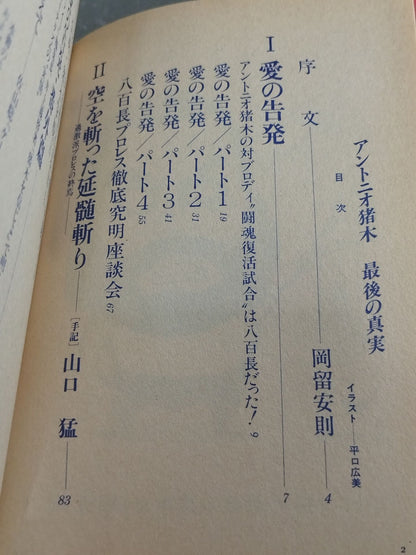 アントニオ猪木 最後の真実
目次
イラスト——平口広美
序文——岡留安則——4
Ⅰ 愛の告発——7
アントニオ猪木の対ブロディ“闘魂復活試合”は八百長だった! 9
愛の告発/パート1 19
愛の告発/パート2 31
愛の告発/パート3 41
愛の告発/パート4 55
八百長プロレス徹底究明座談会 67
Ⅱ 空を斬った延髄斬り——[手記]山口 猛——83
過激派プロレスの終焉
2